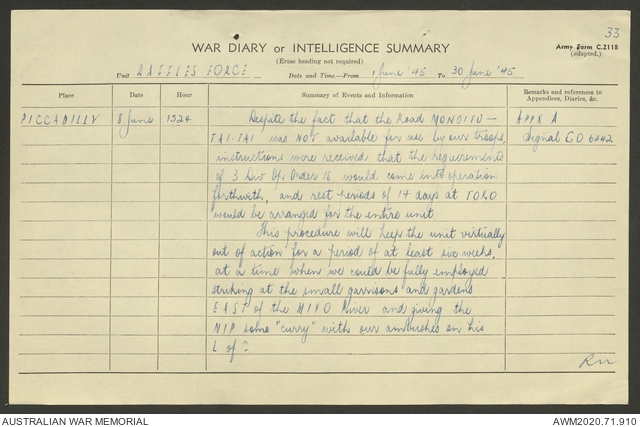 33
WAR DIARY or INTELLIGENCE SUMMARY
Army Form C.2118
(adapted.)
(Erase heading not required)
Unit RAFFLES FORCE Date and Time—From 1 June '45 To 30 June '45
Place Date Hour Summary of Events and Information Remarks and references to
Appendices, Diaries, &c.
PICCADILLY 8 June 1524 Despite the fact that the Road MONOITU – APPX A
TAI-TAI was NOT available for use by our troops, Signal GO 6442
instructions were received that the requirements
of 3 Div Op Order 16 would come into operation
forthwith, and rest periods of 14 days at TOKO
would be arranged for the entire unit.
This procedure will keep the unit virtually
out of action for a period of at least six weeks,
at a time when we could be fully employed
striking at the small garrisons and gardens
EAST of the MIVO River and giving the
NIP some "curry" with our ambushes on his
L of C.
AUSTRALIAN WAR MEMORIAL AWM2020.71.910